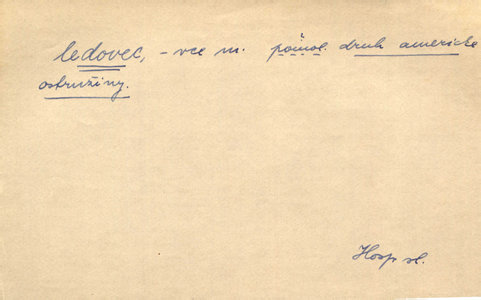 ledovec, -vce m. pomol. druh americké
ostružiny.
Hosp sl.